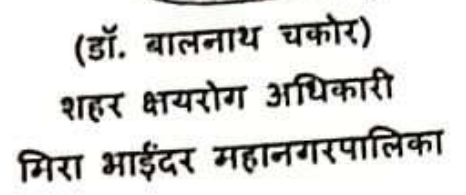 (डॉ. बालनाथ चकोर)
शहर क्षयरोग अधिकारी
मिरा भाईंदर महानगरपालिका